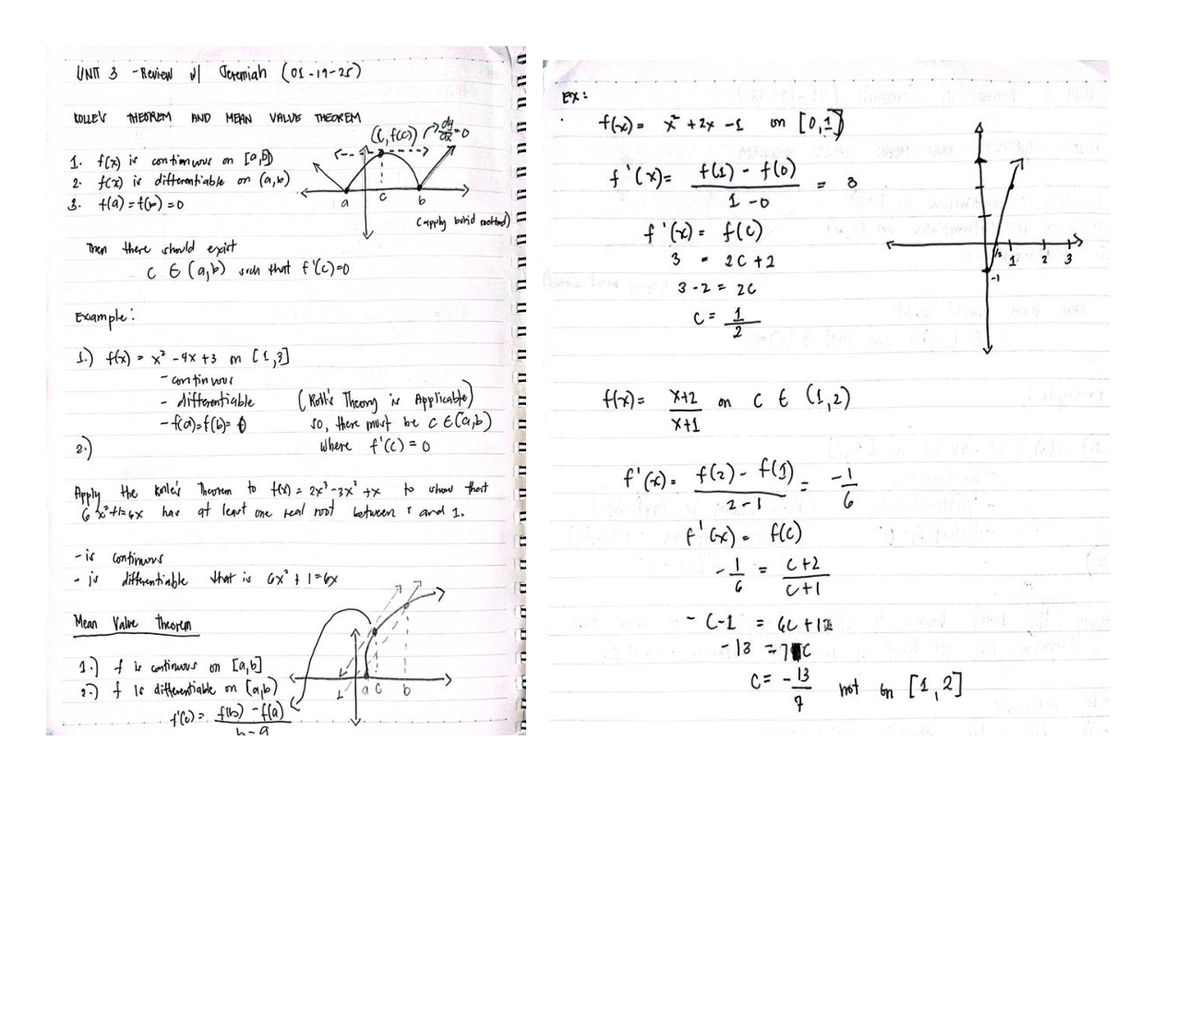 UNIT 3 - Review w/ Jeremiah (01-19-25)
ROLLE'S THEOREM AND MEAN VALUE THEOREM
(c, f(c)) → dy/dx = 0
1. f(x) is continuous on [a,b]
2. f(x) is differentiable on (a,b)
3. f(a) = f(b) = 0
a c b
(apply bond method)
Then there should exist
c ∈ (a,b) such that f'(c)=0
Example:
1.) f(x) = x² - 4x + 3 on [1,3]
- continuous
- differentiable
- f(a) = f(b) = 0
(Rolle's Theory is Applicable)
so, there must be c ∈ (a,b)
where f'(c) = 0
2.)
Apply the Rolle's Theorem to f(x) = 2x³ - 3x² + x to show that
6x²+1=6x has at least one real root between 1 and 1.
- is continuous
- is differentiable that is 6x² + 1 = 6x
Mean Value Theorem
1.) f is continuous on [a,b]
2.) f is differentiable on (a,b)
f'(c) = f(b) - f(a) / b - a
a c b
Ex:
f(x) = x² + 2x - 1 on [0,1]
f'(x) = f(1) - f(0) / 1 - 0 = 3
f'(x) = f(c)
3 = 2c + 2
3 - 2 = 2c
c = 1/2
1/2 1 2 3
-1
f(x) = x+2 / x+1 on c ∈ (1,2)
f'(x) = f(2) - f(1) / 2 - 1 = -1/6
f'(x) = f(c)
-1/6 = c+2 / c+1
-c-1 = 6c + 12
-13 = 7c
c = -13/7 not on [1,2]